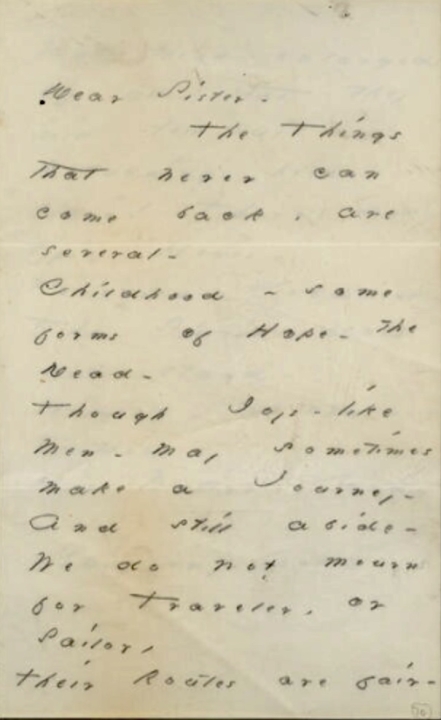 Dear Sister.
The Things
that never can
come back, are
several -
Childhood - some
forms of Hope - the
Dead -
Though Joys - like
Men - may sometimes
make a Journey -
And still abide -
We do not mourn
for Traveler, or
Sailor,
Their Routes are fair -